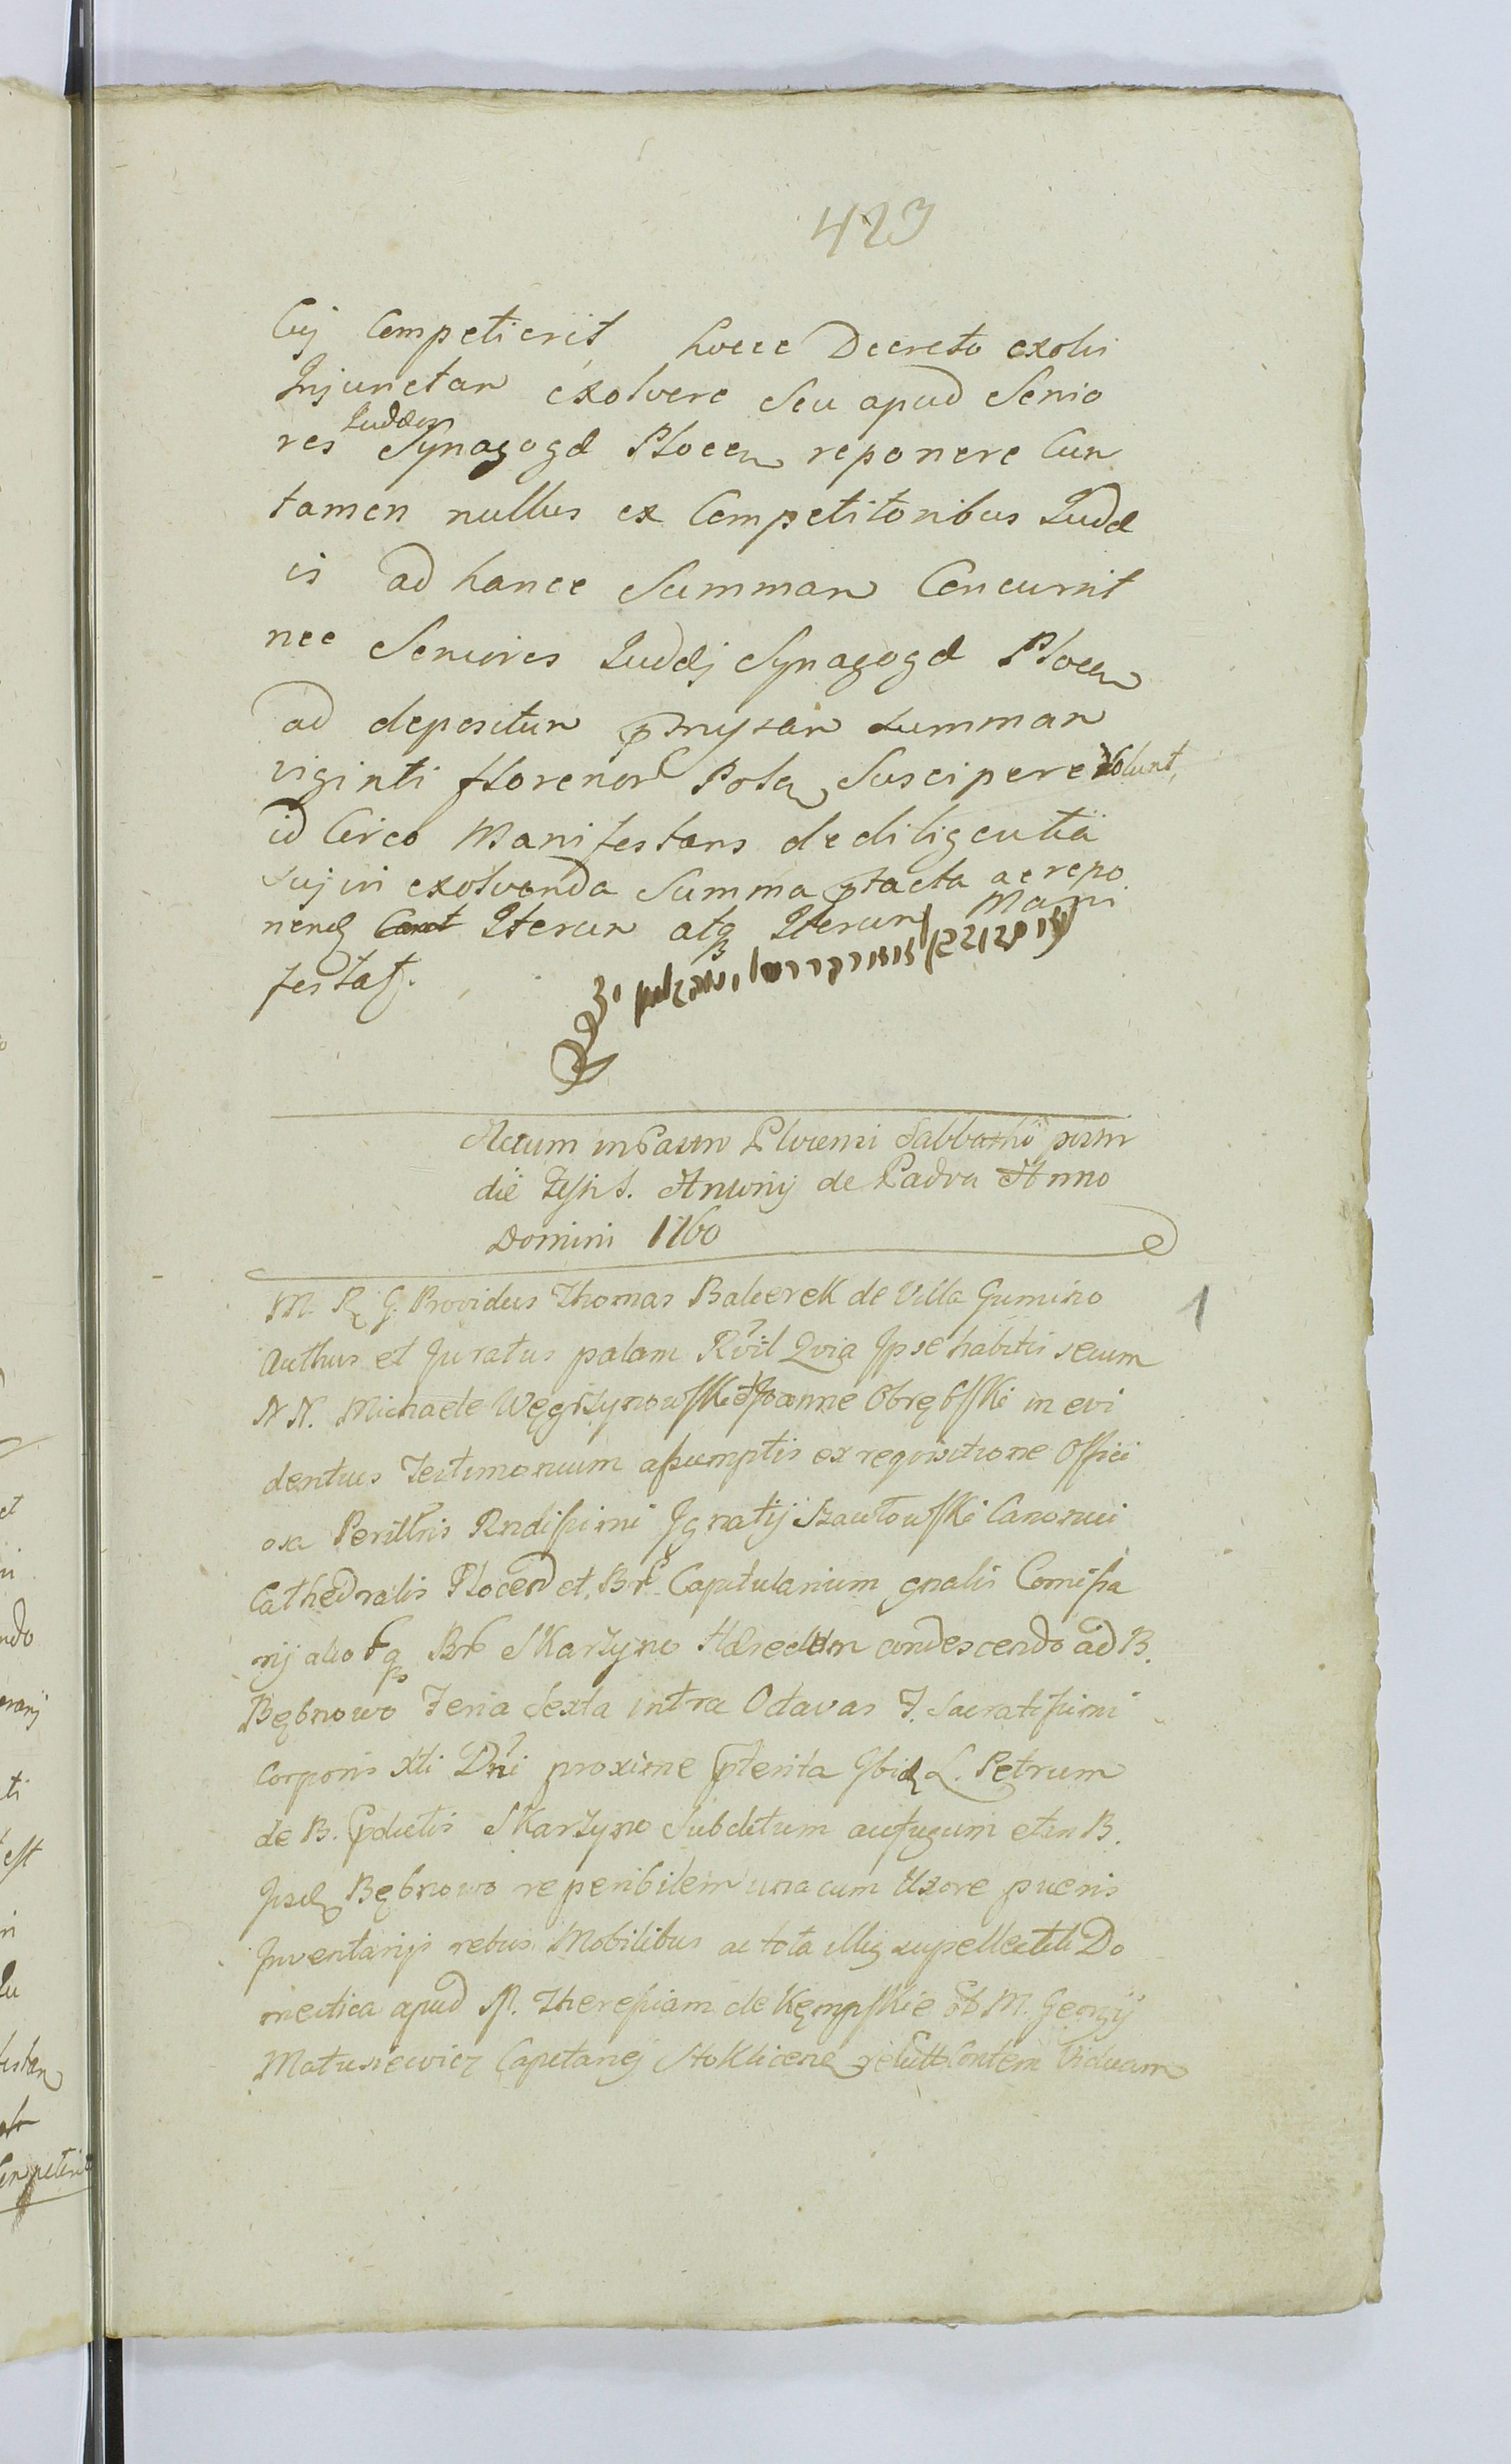 423
Cuj Competierit hocce Decreto exolvi
Injunctam exolvere seu apud Senio
Judæor
res Synagogæ Plocen reponere Cum
tamen nullus ex Competitoribus Judæ
is ad hance Summam Concurrit
nec Seniores Judæj Synagogæ Plocen
ad depositum Summam
viginti florenor Polon Suscipere volunt,
id Circo Manifestans de diligentia
Suj in exolvenda Summa ptacta ac repo
nend Iterum atq Iterum Mani
festat.
Actum in Castro Plocensi Sabbatho prim
die Festi S. Antonij de Padva Anno
Domini 1760
M. R. G. Providus Thomas Balcerek de Villa Gumino 1
Authus et Juratus palam Rvit Qvia Ipse habitis secum
N N. Michaele Węgrzynowski et Joanne Obrębski in evi
dentius Testimonium assumptis ex reqvisitione Offici
osa Perillris Rndissimi Ignatij Szawłowski Canonici
Cathedralis Plocen et Br Capitularium gnalis Comissa
rij alio q Br Skarzyno Hæredum condescendo ad B.
Bębnowo Feria Sexta intra Octavas F. Sacratissimi
Corporis Xti Dni proxime pterita Ibid L. Petrum
de B. pdictis Skarzyno Subditum aufugum et in B.
Ipsd Bębnowo reperibilem una cum Uxore pueris
Inventarijs rebus Mobilibus ac tota illius supellectili Do
mestica apud M. Theressiam de Kempskie M. Georgij
Matusiewicz Capitanej Stoklicen relict Contem Viduam